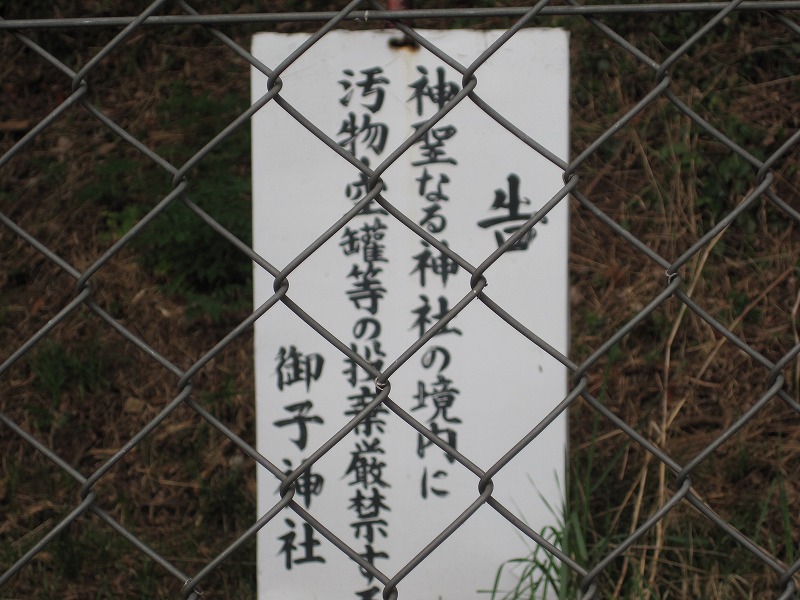 告
神聖なる神社の境内に
汚物空罐等の投棄厳禁する
御子神社